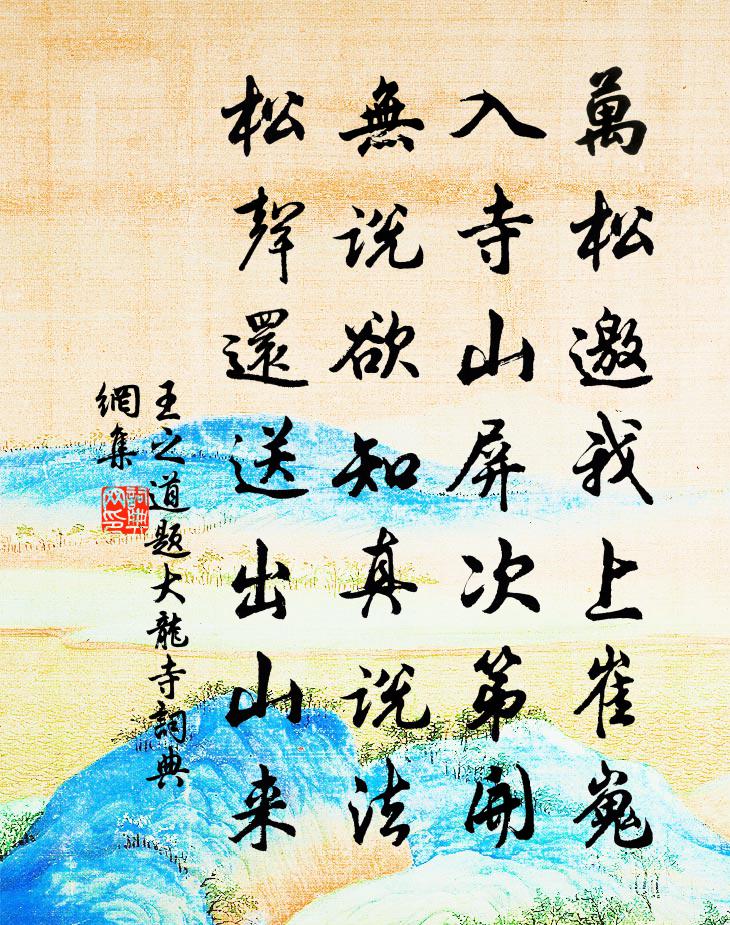 萬松邀我上崔嵬
入寺山屏次第開
無説欲知真説法
松聲還送出山来
王之道題大龍寺詞典
網集
詞典網印